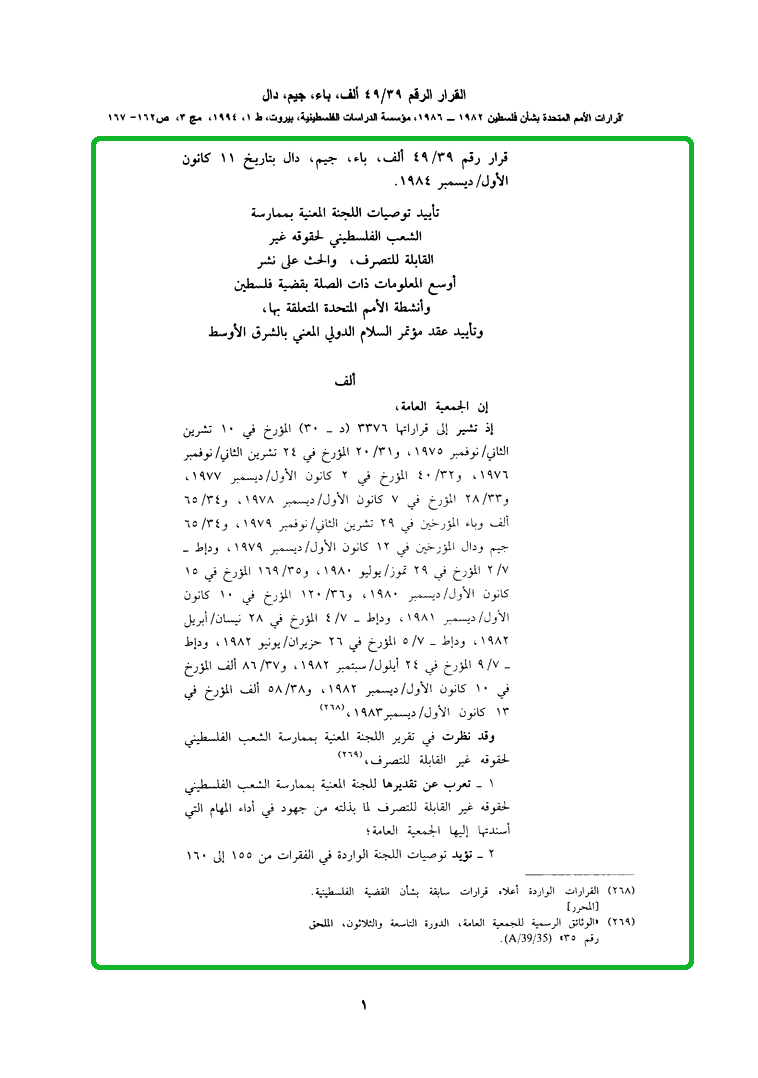 القرار الرقم ٤٩/٣٩ ألف، باء، جيم، دال
"قرارات الأمم المتحدة بشأن فلسطين ١٩٨٢ ــ ١٩٨٦، مؤسسة الدراسات الفلسطينية، بيروت، ط ١، ١٩٩٤، مج ٣، ص١٦٢- ١٦٧
قرار رقم ٤٩/٣٩ ألف، باء، جيم، دال بتاريخ ١١ كانون
الأول/ديسمبر ١٩٨٤.
تأييد توصيات اللجنة المعنية بممارسة
الشعب الفلسطيني لحقوقه غير
القابلة للتصرف، والحث على نشر
أوسع المعلومات ذات الصلة بقضية فلسطين
وأنشطة الأمم المتحدة المتعلقة بها،
وتأييد عقد مؤتمر السلام الدولي المعني بالشرق الأوسط
ألف
إن الجمعية العامة،
إذ تشير إلى قراراتها ٣٣٧٦ (د ــ ٣٠) المؤرخ في ١٠ تشرين
الثاني/نوفمبر ١٩٧٥، و٢٠/٣١ المؤرخ في ٢٤ تشرين الثاني/نوفمبر
١٩٧٦، و٤٠/٣٢ المؤرخ في ٢ كانون الأول/ديسمبر ١٩٧٧،
و٢٨/٣٣ المؤرخ في ٧ كانون الأول/ديسمبر ١٩٧٨، و٦٥/٣٤
ألف وباء المؤرخين في ٢٩ تشرين الثاني/نوفمبر ١٩٧٩، و٦٥/٣٤
جيم ودال المؤرخين في ١٢ كانون الأول/ديسمبر ١٩٧٩، ودإط ــ
٢/٧ المؤرخ في ٢٩ تموز/يوليو ١٩٨٠، و١٦٩/٣٥ المؤرخ في ١٥
كانون الأول/ديسمبر ١٩٨٠، و١٢٠/٣٦ المؤرخ في ١٠ كانون
الأول/ديسمبر ١٩٨١، ودإط ــ ٤/٧ المؤرخ في ٢٨ نيسان/أبريل
١٩٨٢، ودإط ــ ٥/٧ المؤرخ في ٢٦ حزيران/يونيو ١٩٨٢، ودإط
ــ ٩/٧ المؤرخ في ٢٤ أيلول/سبتمبر ١٩٨٢، و٨٦/٣٧ ألف المؤرخ
في ١٠ كانون الأول/ديسمبر ١٩٨٢، و٥٨/٣٨ ألف المؤرخ في
١٣ كانون الأول/ديسمبر١٩٨٣،(٢٦٨)
وقد نظرت في تقرير اللجنة المعنية بممارسة الشعب الفلسطيني
لحقوقه غير القابلة للتصرف،(٢٦٩)
١ ــ تعرب عن تقديرها للجنة المعنية بممارسة الشعب الفلسطيني
لحقوقه غير القابلة للتصرف لما بذلته من جهود في أداء المهام التي
أسندتها إليها الجمعية العامة؛
٢ ــ تؤيد توصيات اللجنة الواردة في الفقرات من ١٥٥ إلى ١٦٠
(٢٦٨) القرارات الواردة أعلاه قرارات سابقة بشأن القضية الفلسطينية.
[المحرر]
(٢٦٩) «الوثائق الرسمية للجمعية العامة، الدورة التاسعة والثلاثون، الملحق
رقم ٣٥» (A/39/35).
١